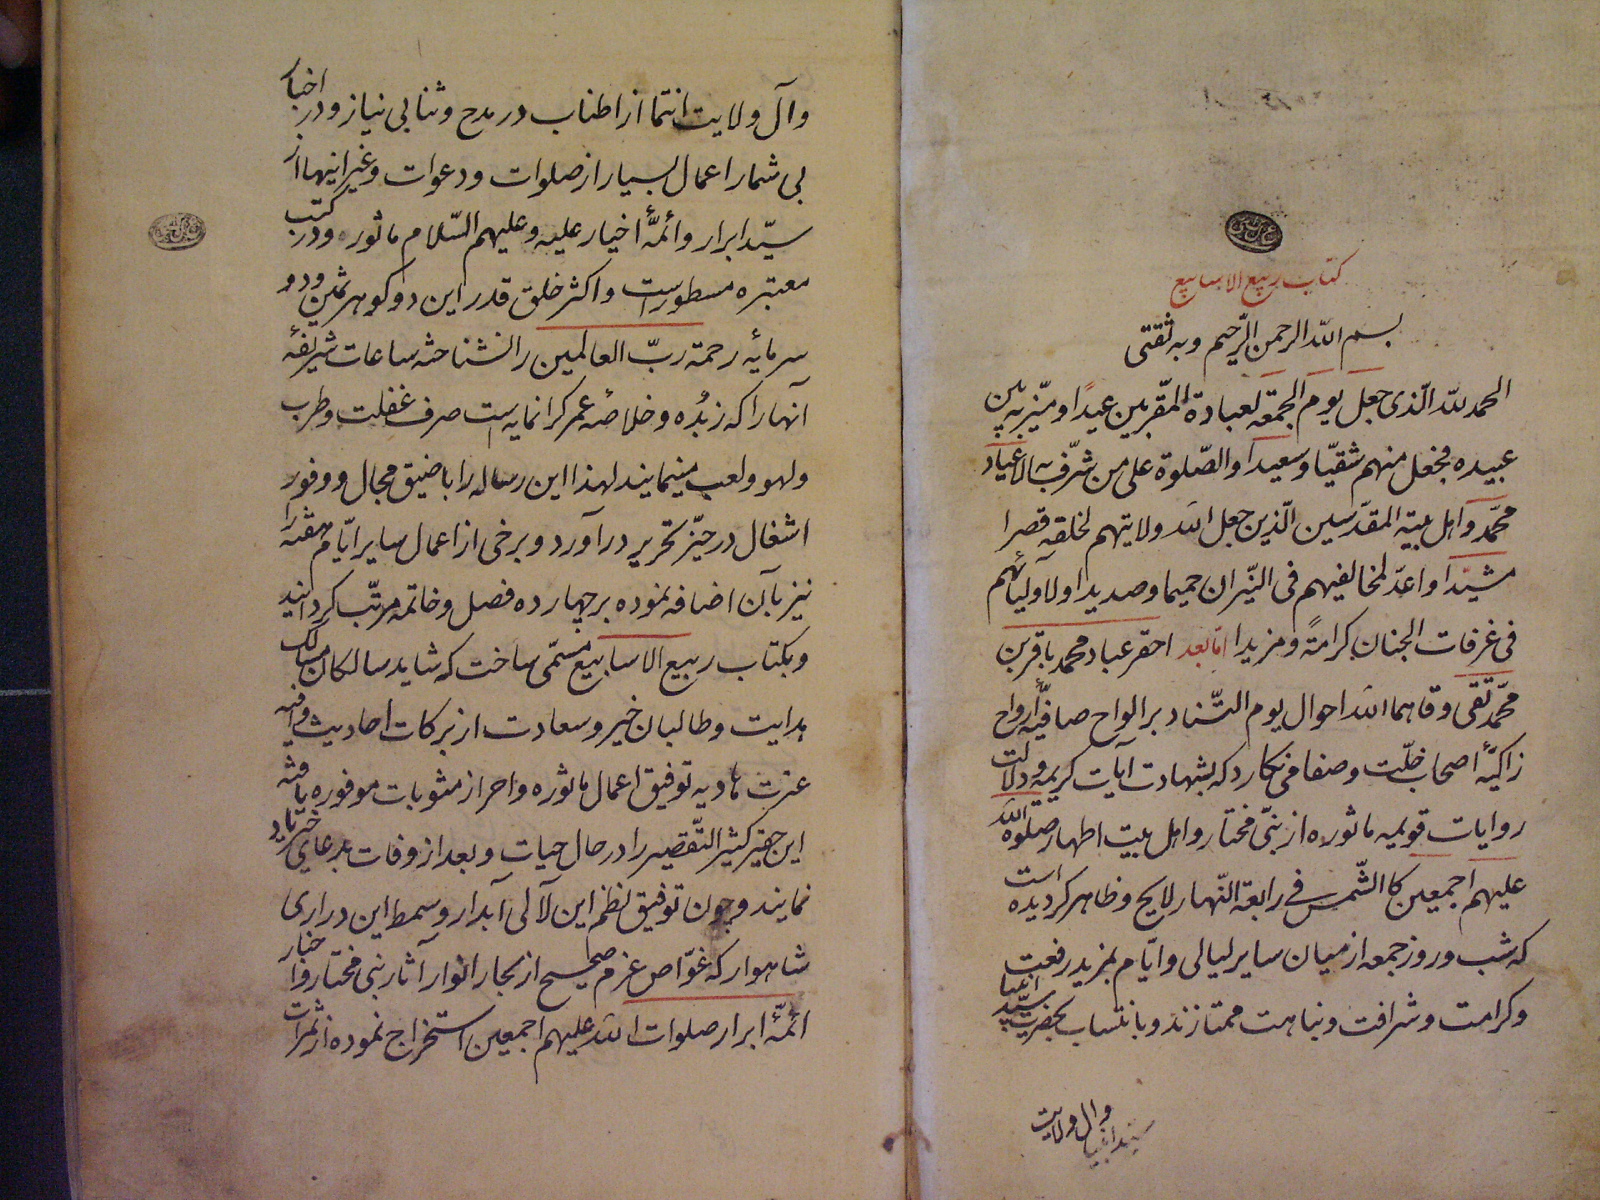 کتاب ربیع الاسابیع
بسم الله الرحمن الرّحیم وبه ثقتی
الحمد للّه الّذی جعل یوم الجمعة لعباده المقرّبین عیدًا ومیّز به بین
عبیده فجعل منهم شقیّا وسعیدا والصّلوة علی من شرّف به الاعیاد
محمّد واهل بیته المقدّسین الّذین جعل الله ولایتهم لخلقه قصرا
مشیّدا واعدّ لمخالفیهم فی النّیران حمیما وصدیدا ولاولیائهم
فی غرفات الجنان کرامةً ومزیدا امّا بعد احقر عباد محمد باقر بن
محمّد تقی وقاهما الله احوال یوم التّناد بر الواح صافیۀ ارواح
زاکیۀ اصحاب خلّت وصفا می نکارد که بشهادت آیات کریمه ودلالت
روایات قویمه ماثوره از نبیّ مختار واهل بیت اطهار صلوة الله
علیهم اجمعین کالشّمس فی رابعة النّهار لایح وظاهر کردیده است
که شب وروز جمعه از میان سایر لیالی وایّام بمزید رفعت
وکرامت وشرافت ونباهت ممتازند وبانتساب بحضرت سیّد انبیا
سید انبیا وآل ولایت
وآل ولایت انتما از اطناب در مدح وثنا بی نیاز ودر اخبار
بی شمار اعمال بسیار از صلوات ودعوات وغیر اینها از
سیّد ابرار وائمّۀ اخیار علیه وعلیهم السّلام ماثوره ودر کتب
معتبره مسطور است واکثر خلق قدر این دو کوهر ثمین ودو
سرمایۀ رحمة ربّ العالمین را نشناخته ساعات شریفۀ
آنها را که زبُده وخلاصۀ عمر کرانمایه است صرف غفلت وطرب
ولهو ولعب مینمایند لهذا این رساله را با ضیق مجال ووفور
اشغال در حیّز تحریر درآورد وبرخی از اعمال سایر ایّام هفته را
نیز بآن اضافه نموده بر چهارده فصل وخاتمه مرتّب کردانید
وبکتاب ربیع الاسابیع مسمّی ساخت که شاید سالکان مسالک
هدایت وطالبان خیر وسعادت از برکات احادیث وافیه
عترت هادیه توفیق اعمال ماثوره واحراز مثوبات موفوره یافته
این حقیر کثیر التّقصیر را در حال حیات وبعد از وفات بدعای خیر یاد
نمایند وچون توفیق نظم این لآلی آبدار وسمط این دراری
شاهوار که غوّاص عزم صحیح از بحار انوار آثار نبی مختار واخبار
ائمّۀ ابرار صلوات الله علیهم اجمعین استخراج نموده از ثمرات